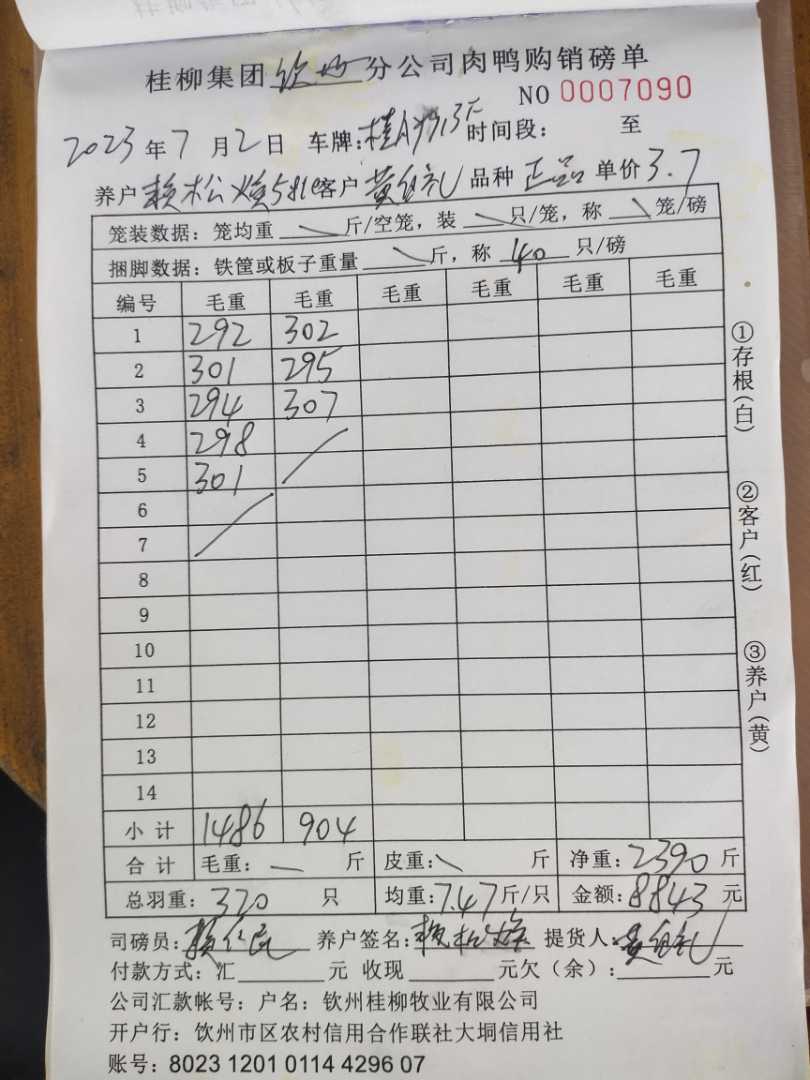 桂柳集团钦州分公司肉鸭购销磅单
NO 0007090
2023年7月2日 车牌:桂 时间段: 至
养户 赖松焕 客户 黄 礼 品种 正品 单价 3.7
笼装数据: 笼均重 斤/空笼, 装 只/笼, 称 笼/磅
捆脚数据: 铁筐或板子重量 斤, 称 40 只/磅
编号 毛重 毛重 毛重 毛重 毛重 毛重
1 292 302
2 301 295
3 294 307
4 298
5 301
6
7
8
9
10
11
12
13
14
小计 1486 904
合计 毛重: 斤 皮重: 斤 净重: 2390 斤
总羽重: 320 只 均重: 7.47 斤/只 金额: 8843 元
司磅员: 赖 养户签名: 赖松焕 提货人: 黄 礼
付款方式: 汇 元 收现 元欠(余): 元
公司汇款帐号: 户名: 钦州桂柳牧业有限公司
开户行: 饮州市区农村信用合作联社大垌信用社
账号: 8023 1201 0114 4296 07
①存根(白)
②客户(红)
③养户(黄)